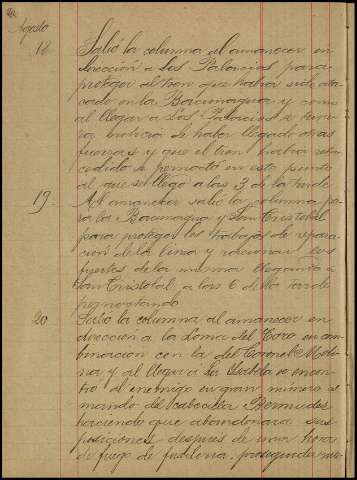 Agosto
18 Salió la columna al amanecer en
dirección a Los Palacios para
proteger el tren que había sido ata
cado en la Bacunagua y como
al llegar a Los Palacios se tuvie
ra noticia de haber llegado otras
fuerzas y que el tren había retro
cedido se pernoctó en este punto
al que se llegó a las 3 de la tarde
19 Al amanecer salió la columna pa
ra la Bacunagua y San Cristobal
para proteger los trabajos de repara
cion de la linea y racionar los
fuertes de la misma llegando a
San Cristobal a las 6 de la tarde
pernoctando
20 Salió la columna al amanecer en
dirección a la Loma del Toro en com
binacion con la del Coronel Moli
na y al llegar a La Isabela se encon
tró al enemigo en gran número al
mando del cabecilla Bermudez
haciendo que abandonara sus
posiciones despues de una hora
de fuego de fusileria, prosiguiendo